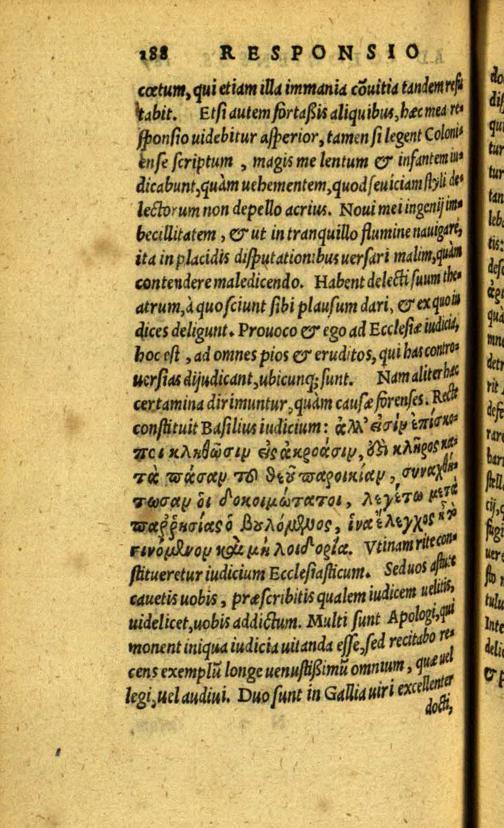 188 RESPONSIO
cœtum, qui etiam illa immania cõuitia tandem refu
tabit. Etsi autem fortaßis aliquibus, hæc mea re-
sponsio uidebitur asperior, tamen si legent Coloni-
ense scriptum, magis me lentum & infantem iu-
dicabunt, quàm uehementem, quod seuiciam styli de-
lectorum non depello acrius. Noui mei ingenij im-
becillitatem, & ut in tranquillo flumine nauigare,
ita in placidis disputationibus uersari malim, quàm
contendere maledicendo. Habent delecti suum the-
atrum, à quo sciunt sibi plausum dari, & ex quo iu-
dices deligunt. Prouoco & ego ad Ecclesiæ iudicia,
hoc est, ad omnes pios & eruditos, qui has contro-
uersias dijudicant, ubicunq; sunt. Nam aliter hæc
certamina dirimuntur, quàm causæ forenses. Rectè
constituit Basilius iudicium: ἀλλ' εἰσὶν ἐπίσκο-
ποι κληθῶσιν εἰς ἀκρόασιν, ὅτι κλῆρος κα-
τὰ πᾶσαν τοῦ θεοῦ παροικίαν, συναχθή-
τωσαν οἱ δοκιμώτατοι, λεγέτω μετὰ
παῤῥησίας ὁ βουλόμενος, ἵνα ἔλεγχος ᾖ τὸ
γινόμενον καὶ μὴ λοιδορία. Vtinam rite con-
stitueretur iudicium Ecclesiasticum. Sed uos astutè
cauetis uobis, præscribitis qualem iudicem uelitis,
uidelicet, uobis addictum. Multi sunt Apologi, qui
monent iniqua iudicia uitanda esse, sed recitabo re-
cens exemplũ longe uenustißimũ omnium, quæ uel
legi, uel audiui. Duo sunt in Gallia uiri excellenter
docti,